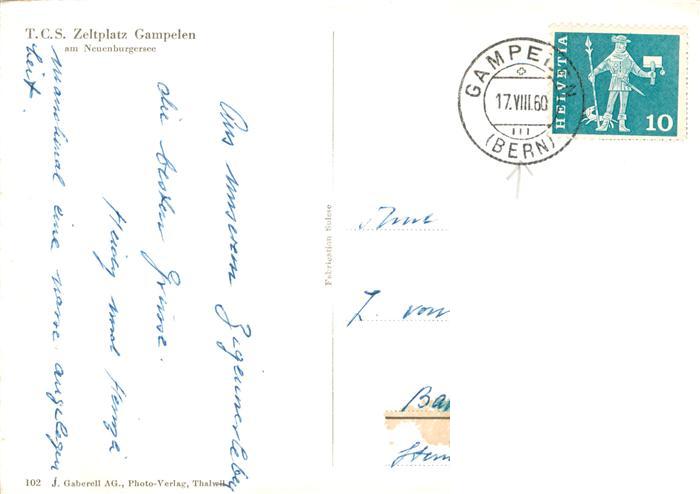 T.C.S. Zeltplatz Gampelen
am Neuenburgersee
Aus unserem Zigeunerleben
die besten Grüsse.
Heidy und Heinz
Manchmal eine nasse Angelegen
heit.
102 J. Gaberell AG., Photo-Verlag, Thalwil
Fabrication Suisse
GAMPELEN
17.VIII.60
(BERN)
HELVETIA
10
von